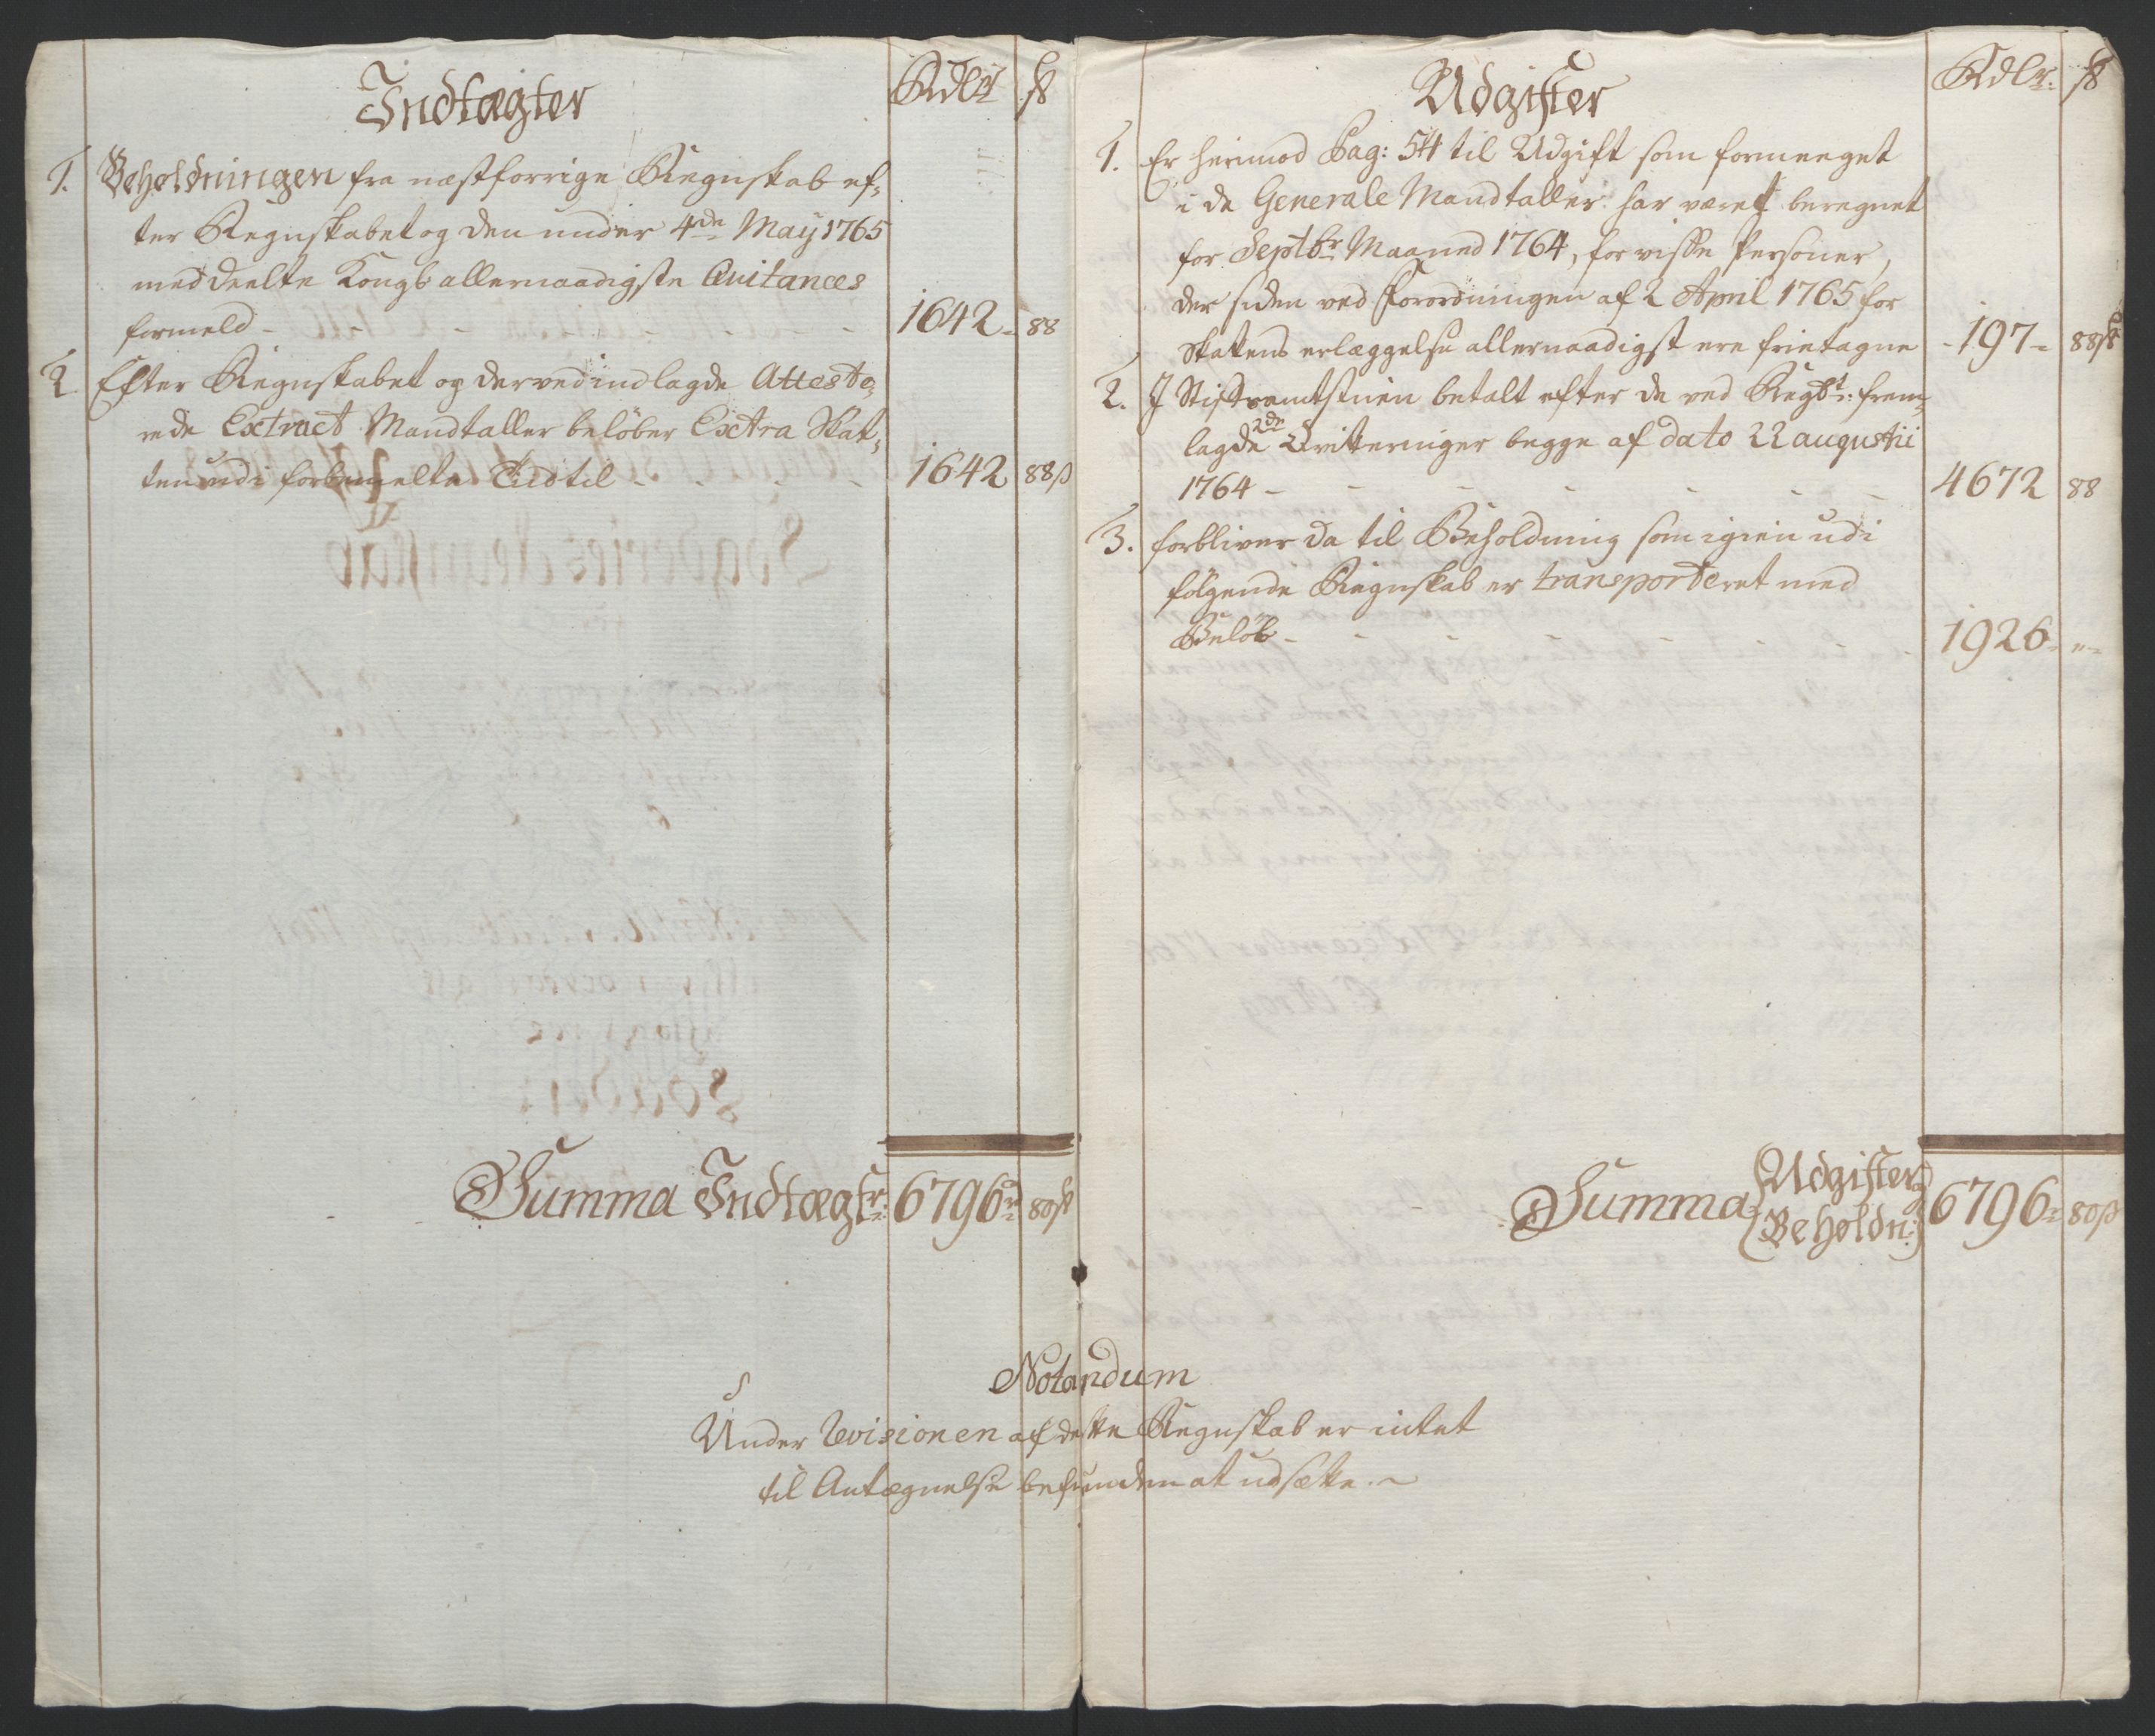 Indtægter
Rdlr ß
1. Beholdningen fra næstforrige Regnskab ef-
ter Regnskabet og den under 4de May 1765
meddeelte Kongl allernaadigste Quitances
formeld - 1642 - 88
2 Efter Regnskabet og derved indlagde Atteste-
rede Extract Mandtaller beløber Extra Skat-
ten udi forbemelte Tid til - 1642 88ß
Summa Indtægtr: 6796r 80ß
Udgifter
Rdlr: ß
1. Er herimod Pag: 54 til Udgift som formeeget
i de Generale Mandtaller har været beregnet
for Septbr Maaned 1764, for visse Personer,
der siden ved Forordningen af 2 April 1765 for
Skattens erlæggelse allernaadigst ere frietagne - 197 - 88ß
2. I Stiftamtstuen betalt efter de ved Regbt: frem-
lagde 2de Qvitteringer begge af dato 22 augustii
1764 - 4672 88
3. forbliver da til Beholdning som igien udi
følgende Regnskab er transporteret med
Beløb - 1926 - " -
Summa Udgifter og
Beholdn: 6796 - 80ß
Notandum
Under Revisionen af dette Regnskab er intet
til Antegnelse befunden at udsætte. ~